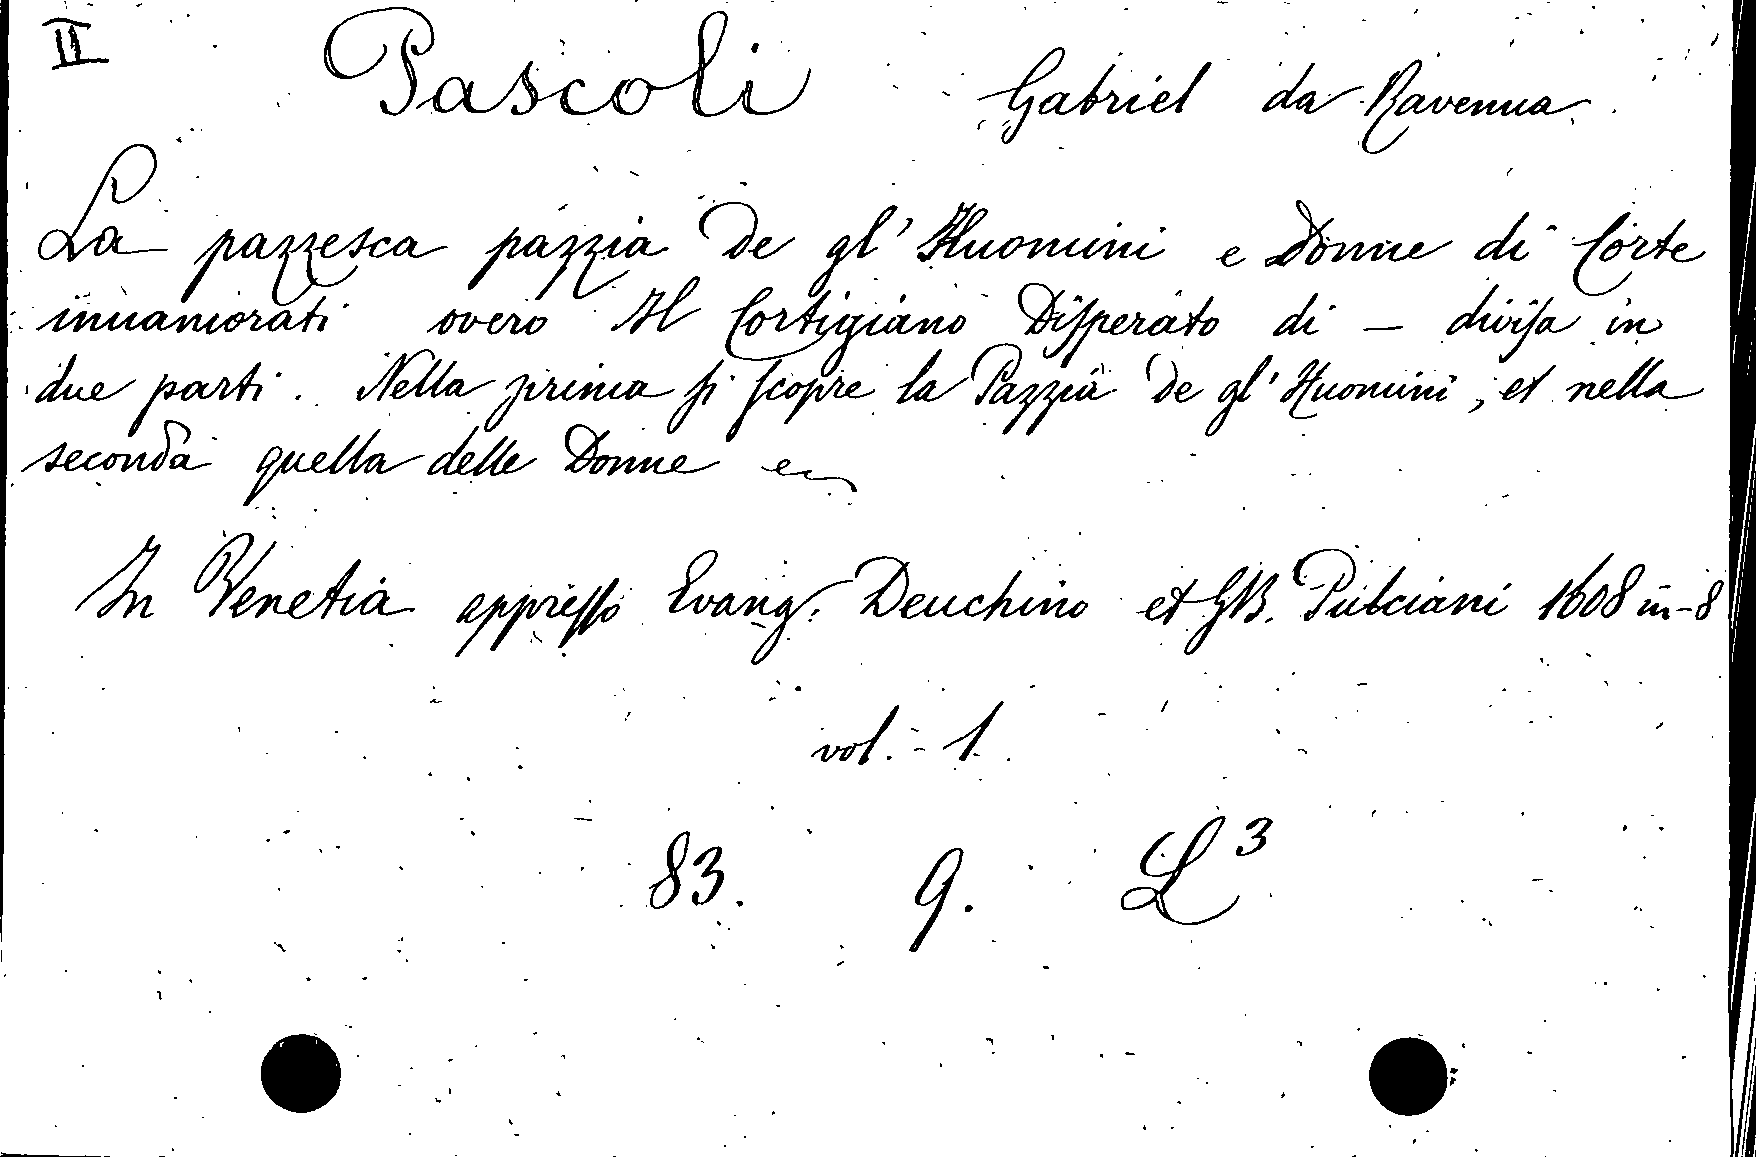 II Pascoli Gabriel da Ravenna
La pazzesca pazzia de gl' Huomini e Donne di Corte
innamorati overo Il Cortigiano Diſperato di — diviſa in
due parti. Nella prima ſi ſcopre la Pazzia de gl' Huomini, et nella
seconda quella delle Donne
In Venetia appreſſo Evang. Deuchino et GB. Pulciani 1608 in-8
vol. - 1
83. 9. L³